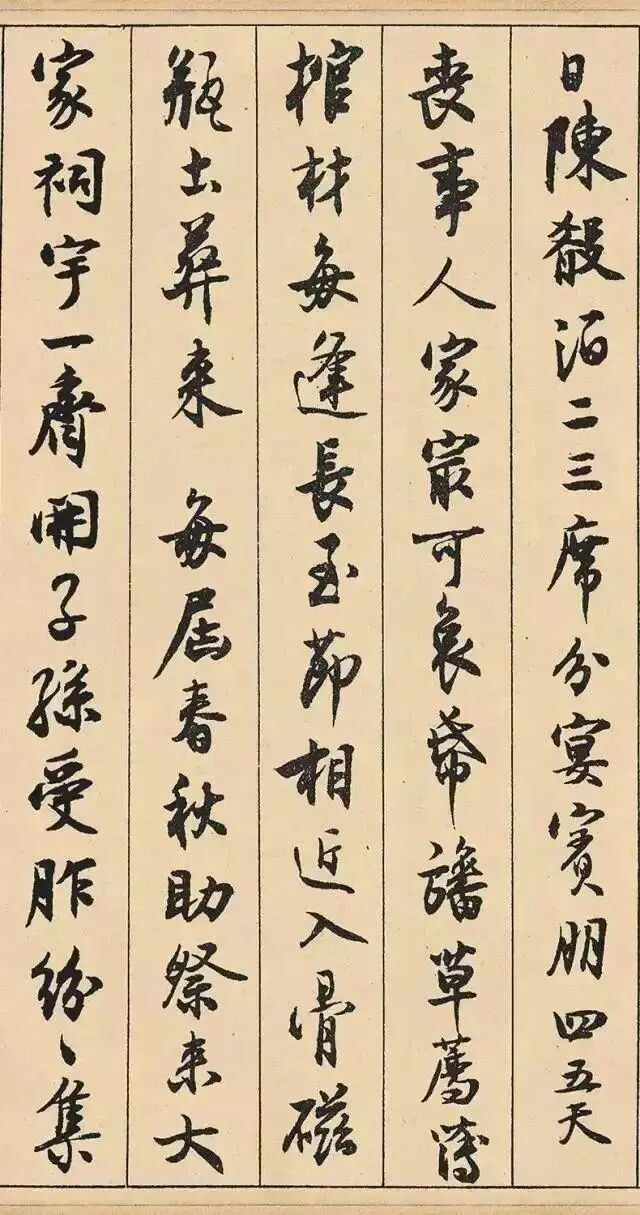 日陳殽酒二三席分宴賓朋四五天
喪事人家最可哀帋旛草薦薄
棺材每逢長至節相近入骨磁
瓶土葬来 每届春秋助祭来大
家祠宇一齊開子孫受胙紛〻集